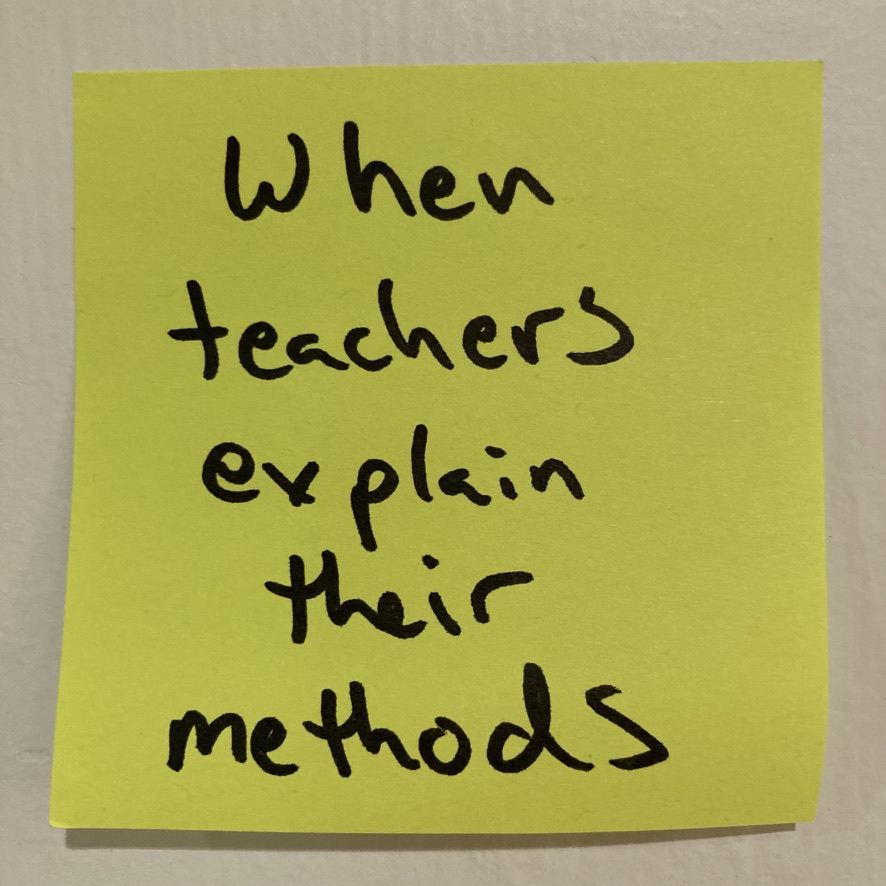 When
teachers
explain
their
methods